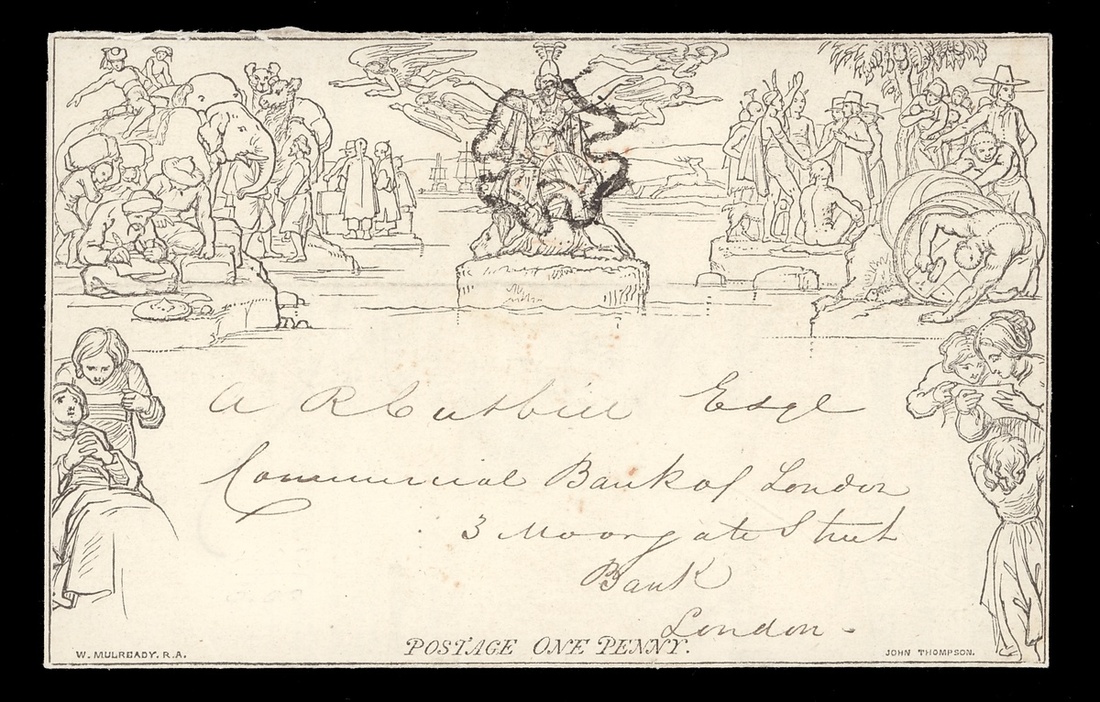 A R Cutbill Esqe
Commercial Bank of London
3 Moorgate Street
Bank
London
POSTAGE ONE PENNY.
W. MULREADY. R.A.
JOHN THOMPSON.